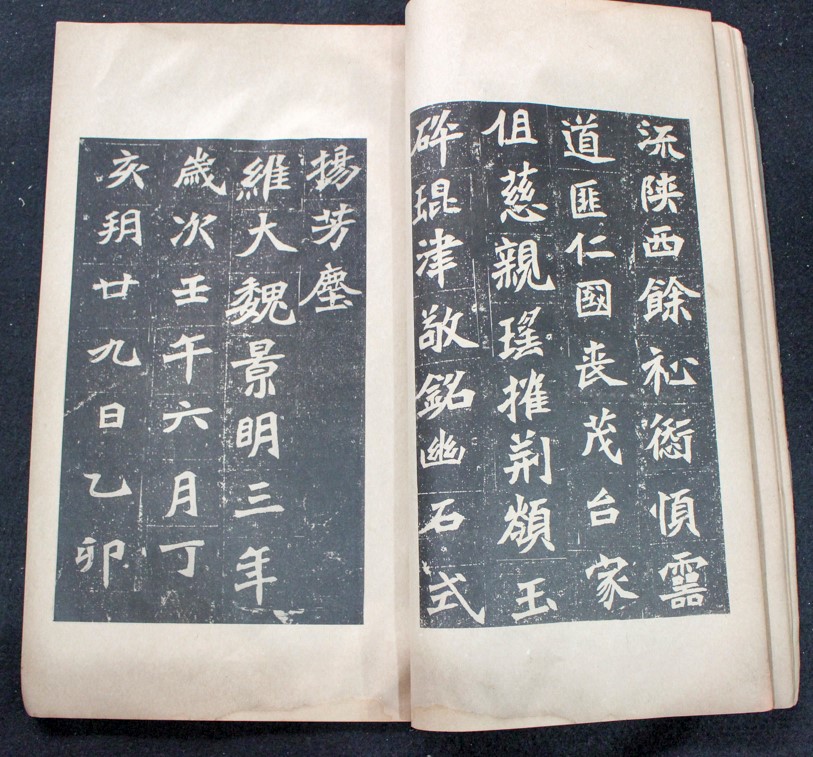 流陝西餘祉愆順靈
道匪仁國喪茂台家
伹慈親瑤摧荊玉
碎琨津敬銘幽石式
揚芳塵
維大魏景明三年
歲次壬午六月丁
亥朔廿九日乙卯